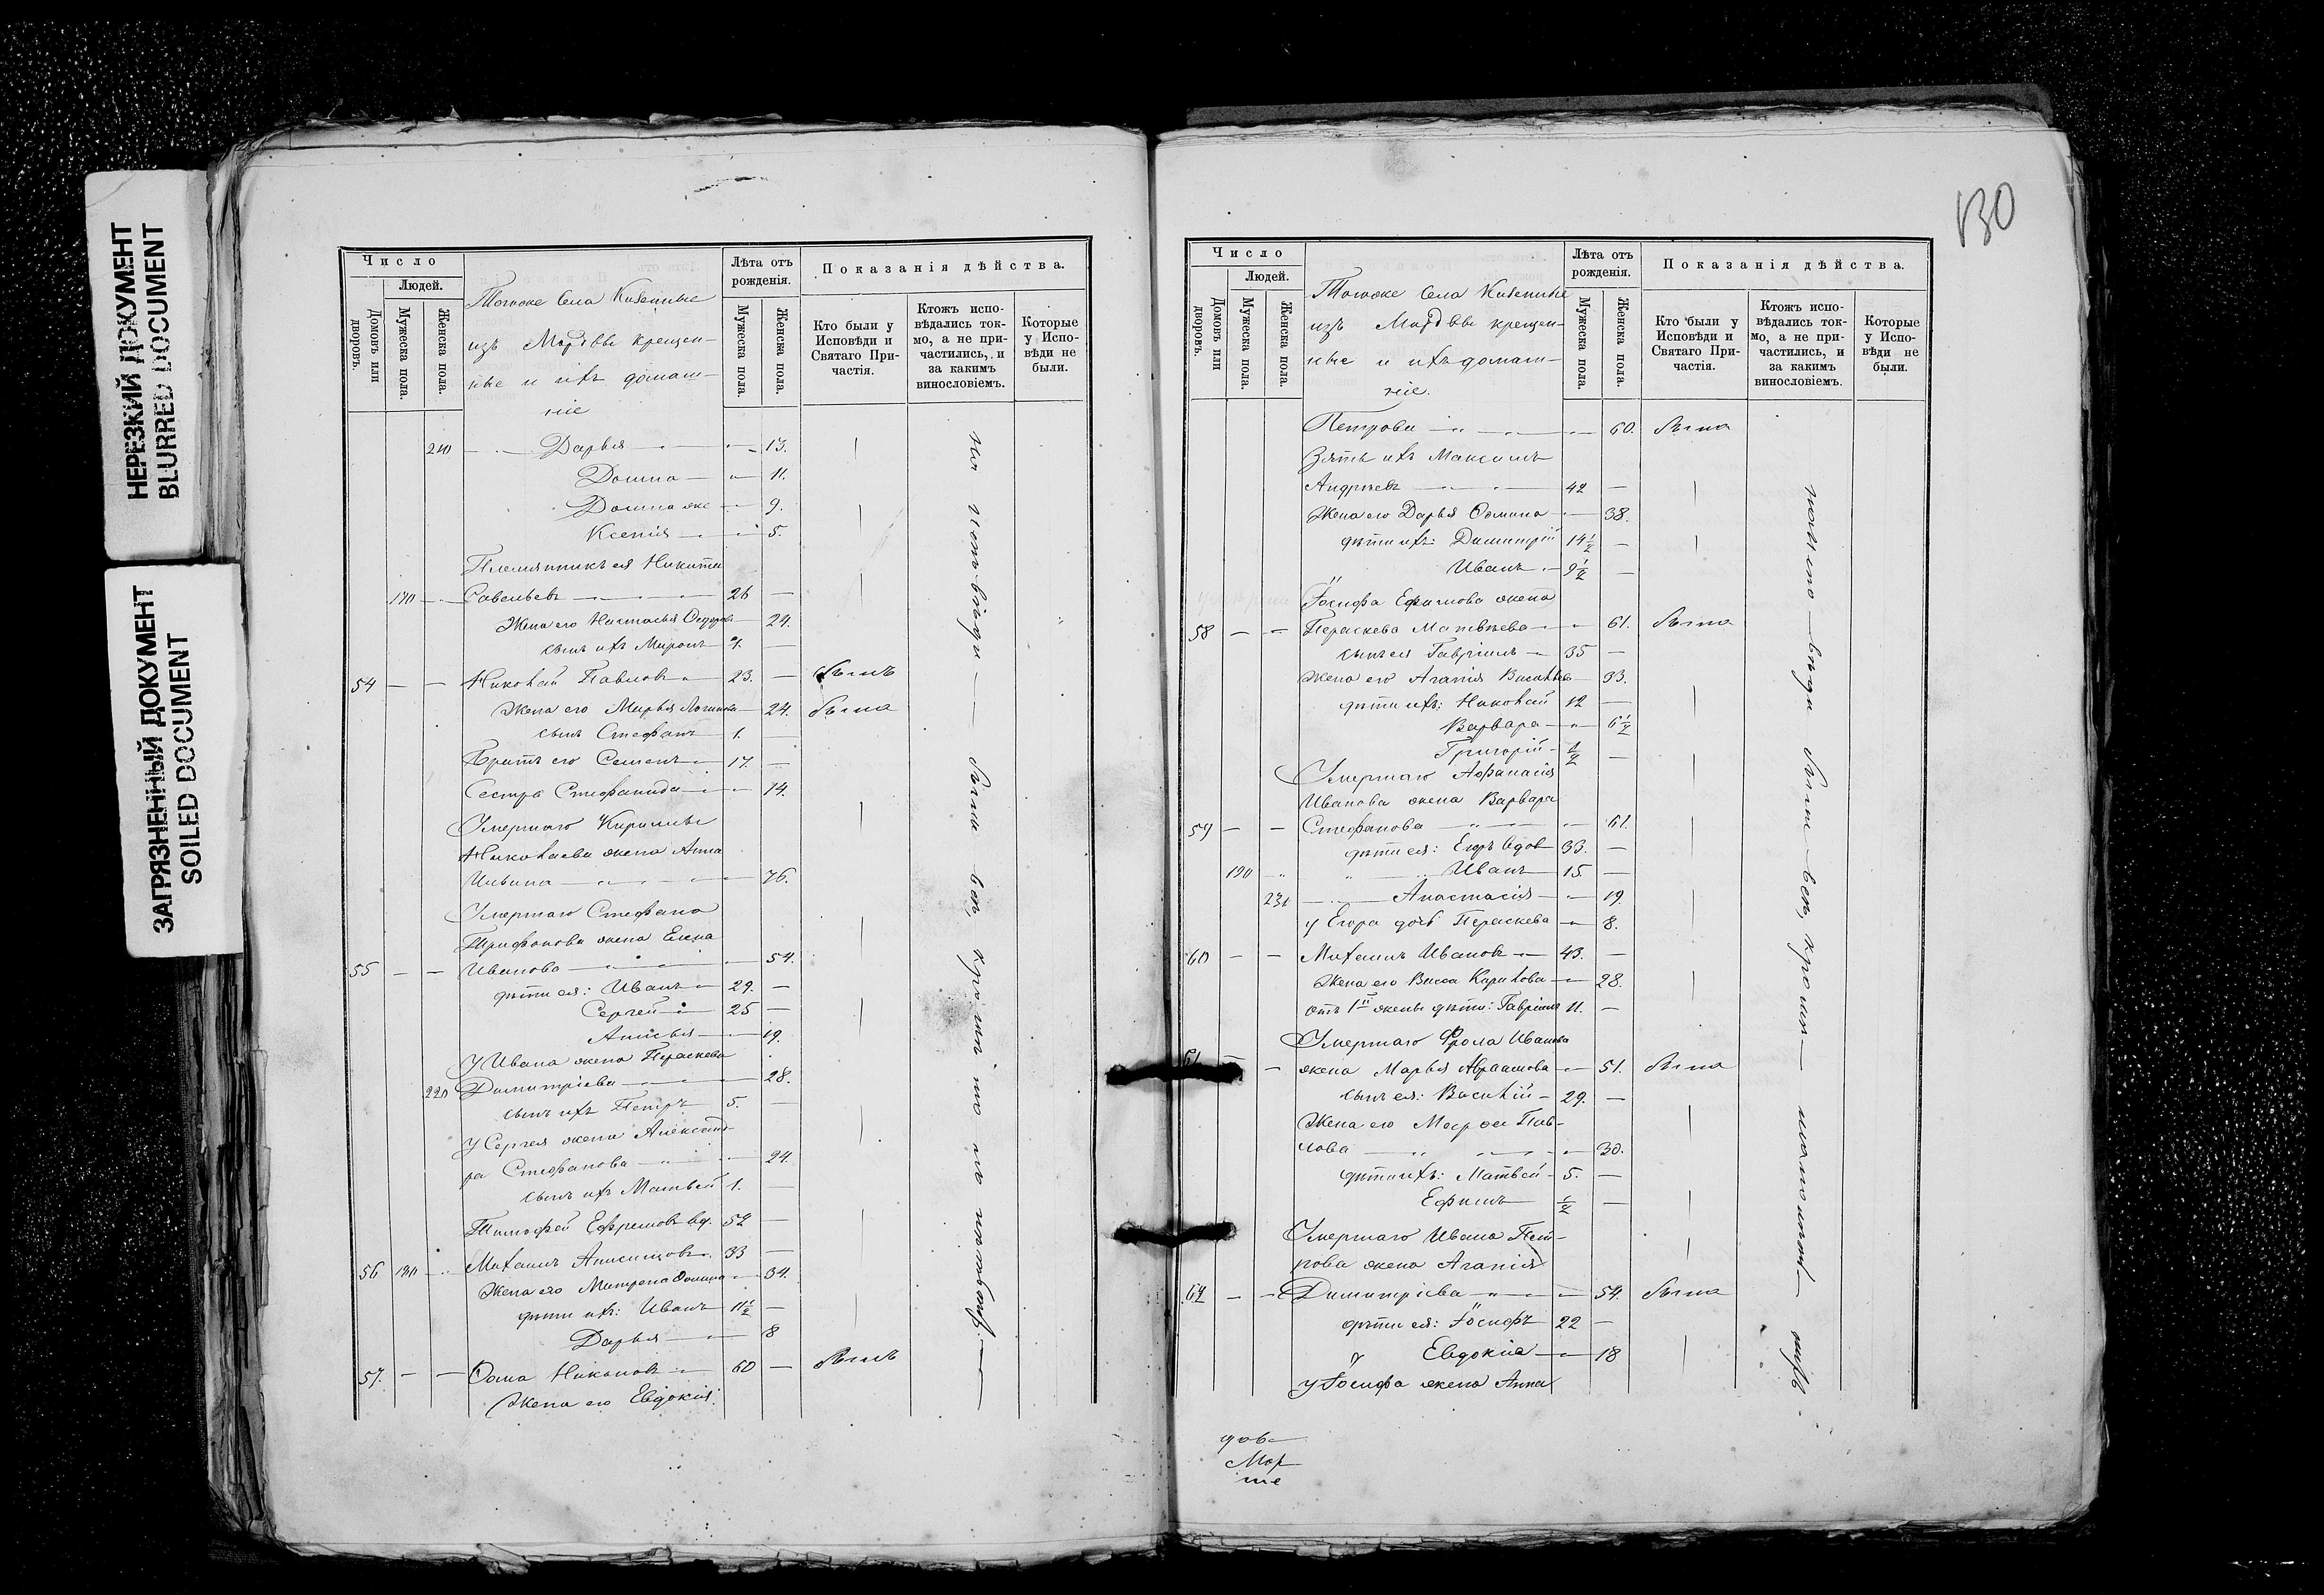 НЕРЕЗКИЙ ДОКУМЕНТ
BLURRED DOCUMENT
ЗАГРЯЗНЕННЫЙ ДОКУМЕНТ
SOILED DOCUMENT
Число
Людей.
Домовъ или дворовъ.
Мужеска пола.
Женска пола.
Тогоже Села
изъ Мордвы крещен-
ные и ихъ домаш-
ніе
Лѣта отъ рожденія.
Мужеска пола.
Женска пола.
Показанія дѣйства.
Кто были у Исповѣди и Святаго При-частія.
Ктожъ испо-вѣдались ток-мо, а не при-частились, и за какимъ винословіемъ.
Которые у Испо-вѣди не были.
210 Дарья 13.
Домна 11.
Домна же 9.
Ксенія 5.
Племянникъ ея Никита
Савельевъ 26
Жена его Настасья
сынъ ихъ Миронъ
54 Николай Павловъ 23. былъ
Жена его Марья Логинова 24. была
сынъ Стефанъ 1.
Братъ его Семенъ 17.
Сестра Стефанида 14.
Умершаго Кириллы
Николаева жена Анна
76.
Умершаго Стефана
Трифонова жена Елена
55 Иванова 54.
дѣти ея: Иванъ 29.
Сергей 25
Анисья 19.
У Ивана жена Параскева
220 Димитріева 28.
сынъ ихъ Петръ 5.
У Сергея жена Александ-
ра Стефанова 24.
сынъ ихъ Матвей 1.
Тимофей Ефремовъ вд. 52
56 180 Михаилъ 33
Жена его Матрена Фомина 34.
дѣти ихъ: Иванъ 11½
Дарья 8
57. Фома Никоновъ 60 былъ
Жена его Евдокія
130
Число
Людей.
Домовъ или дворовъ.
Мужеска пола.
Женска пола.
Тогоже Села
изъ Мордвы крещен-
ные и ихъ домаш-
ніе.
Лѣта отъ рожденія.
Мужеска пола.
Женска пола.
Показанія дѣйства.
Кто были у Исповѣди и Святаго При-частія.
Ктожъ испо-вѣдались ток-мо, а не при-частились, и за какимъ винословіемъ.
Которые у Испо-вѣди не были.
Петрова 60. была
Зять ихъ Максимъ
Андреевъ 42
Жена его Дарья Фомина 38.
дѣти ихъ: Димитрій 14½
Иванъ 9½
Іосифа Ефимова жена
58 Параскева Матвѣева 61. была
сынъ ея Гавріилъ 35
Жена его Агапія 33.
дѣти ихъ: Николай 12
Варвара 6½
Григорій ½
Умершаго Афанасія
Иванова жена Варвара
59 Стефанова 61.
дѣти ея: Егоръ вдов 33.
190 Иванъ 15
230 Анастасія 19
у Егора дочь Параскева 8.
60 Михаилъ Ивановъ 43.
Жена его Васса Карпова 28.
отъ 1й жены дѣти: Гавріилъ 11.
Умершаго Фрола Иванова
61 жена Марья Авраамова 51. была
сынъ ея: Василій 29.
Жена его Марфа Пав-
лова 30.
дѣти ихъ: Матвей 5.
Ефимъ ½
Умершаго Ивана Пет-
рова жена Агапія
62 Димитріева 54. была
дѣти ея: Іосифъ 22
Евдокія 18
у Іосифа жена Анна